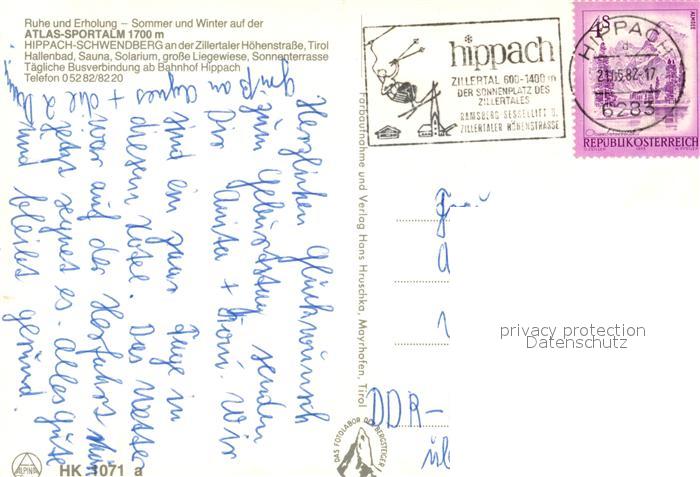 Ruhe und Erholung – Sommer und Winter auf der
ATLAS-SPORTALM 1700 m
HIPPACH-SCHWENDBERG an der Zillertaler Höhenstraße, Tirol
Hallenbad, Sauna, Solarium, große Liegewiese, Sonnenterrasse
Tägliche Busverbindung ab Bahnhof Hippach
Telefon 0 52 82/82 20
hippach
ZILLERTAL 600-1400 m
DER SONNENPLATZ DES
ZILLERTALES
RAMSBERG SESSELLIFT U.
ZILLERTALER HÖHENSTRASSE
HIPPACH
82-17
6283
4 S
ALMSEE
REPUBLIK ÖSTERREICH
Herzlichen Glückwunsch
zum Geburtstag senden
Dir Anita + Wir
sind ein paar Tage in
diesem Hotel. Das Wetter
war auf der
jetzt regnet es. Alles Gute
und bleibt gesund.
Gruß an Agnes + die 2
Farbaufnahme und Verlag Hans Hruschka, Mayrhofen, Tirol
Frau
DDR-
DAS FOTOLABOR DER BERGSTEIGER
ALPINA
HK 1071 a
privacy protection
Datenschutz